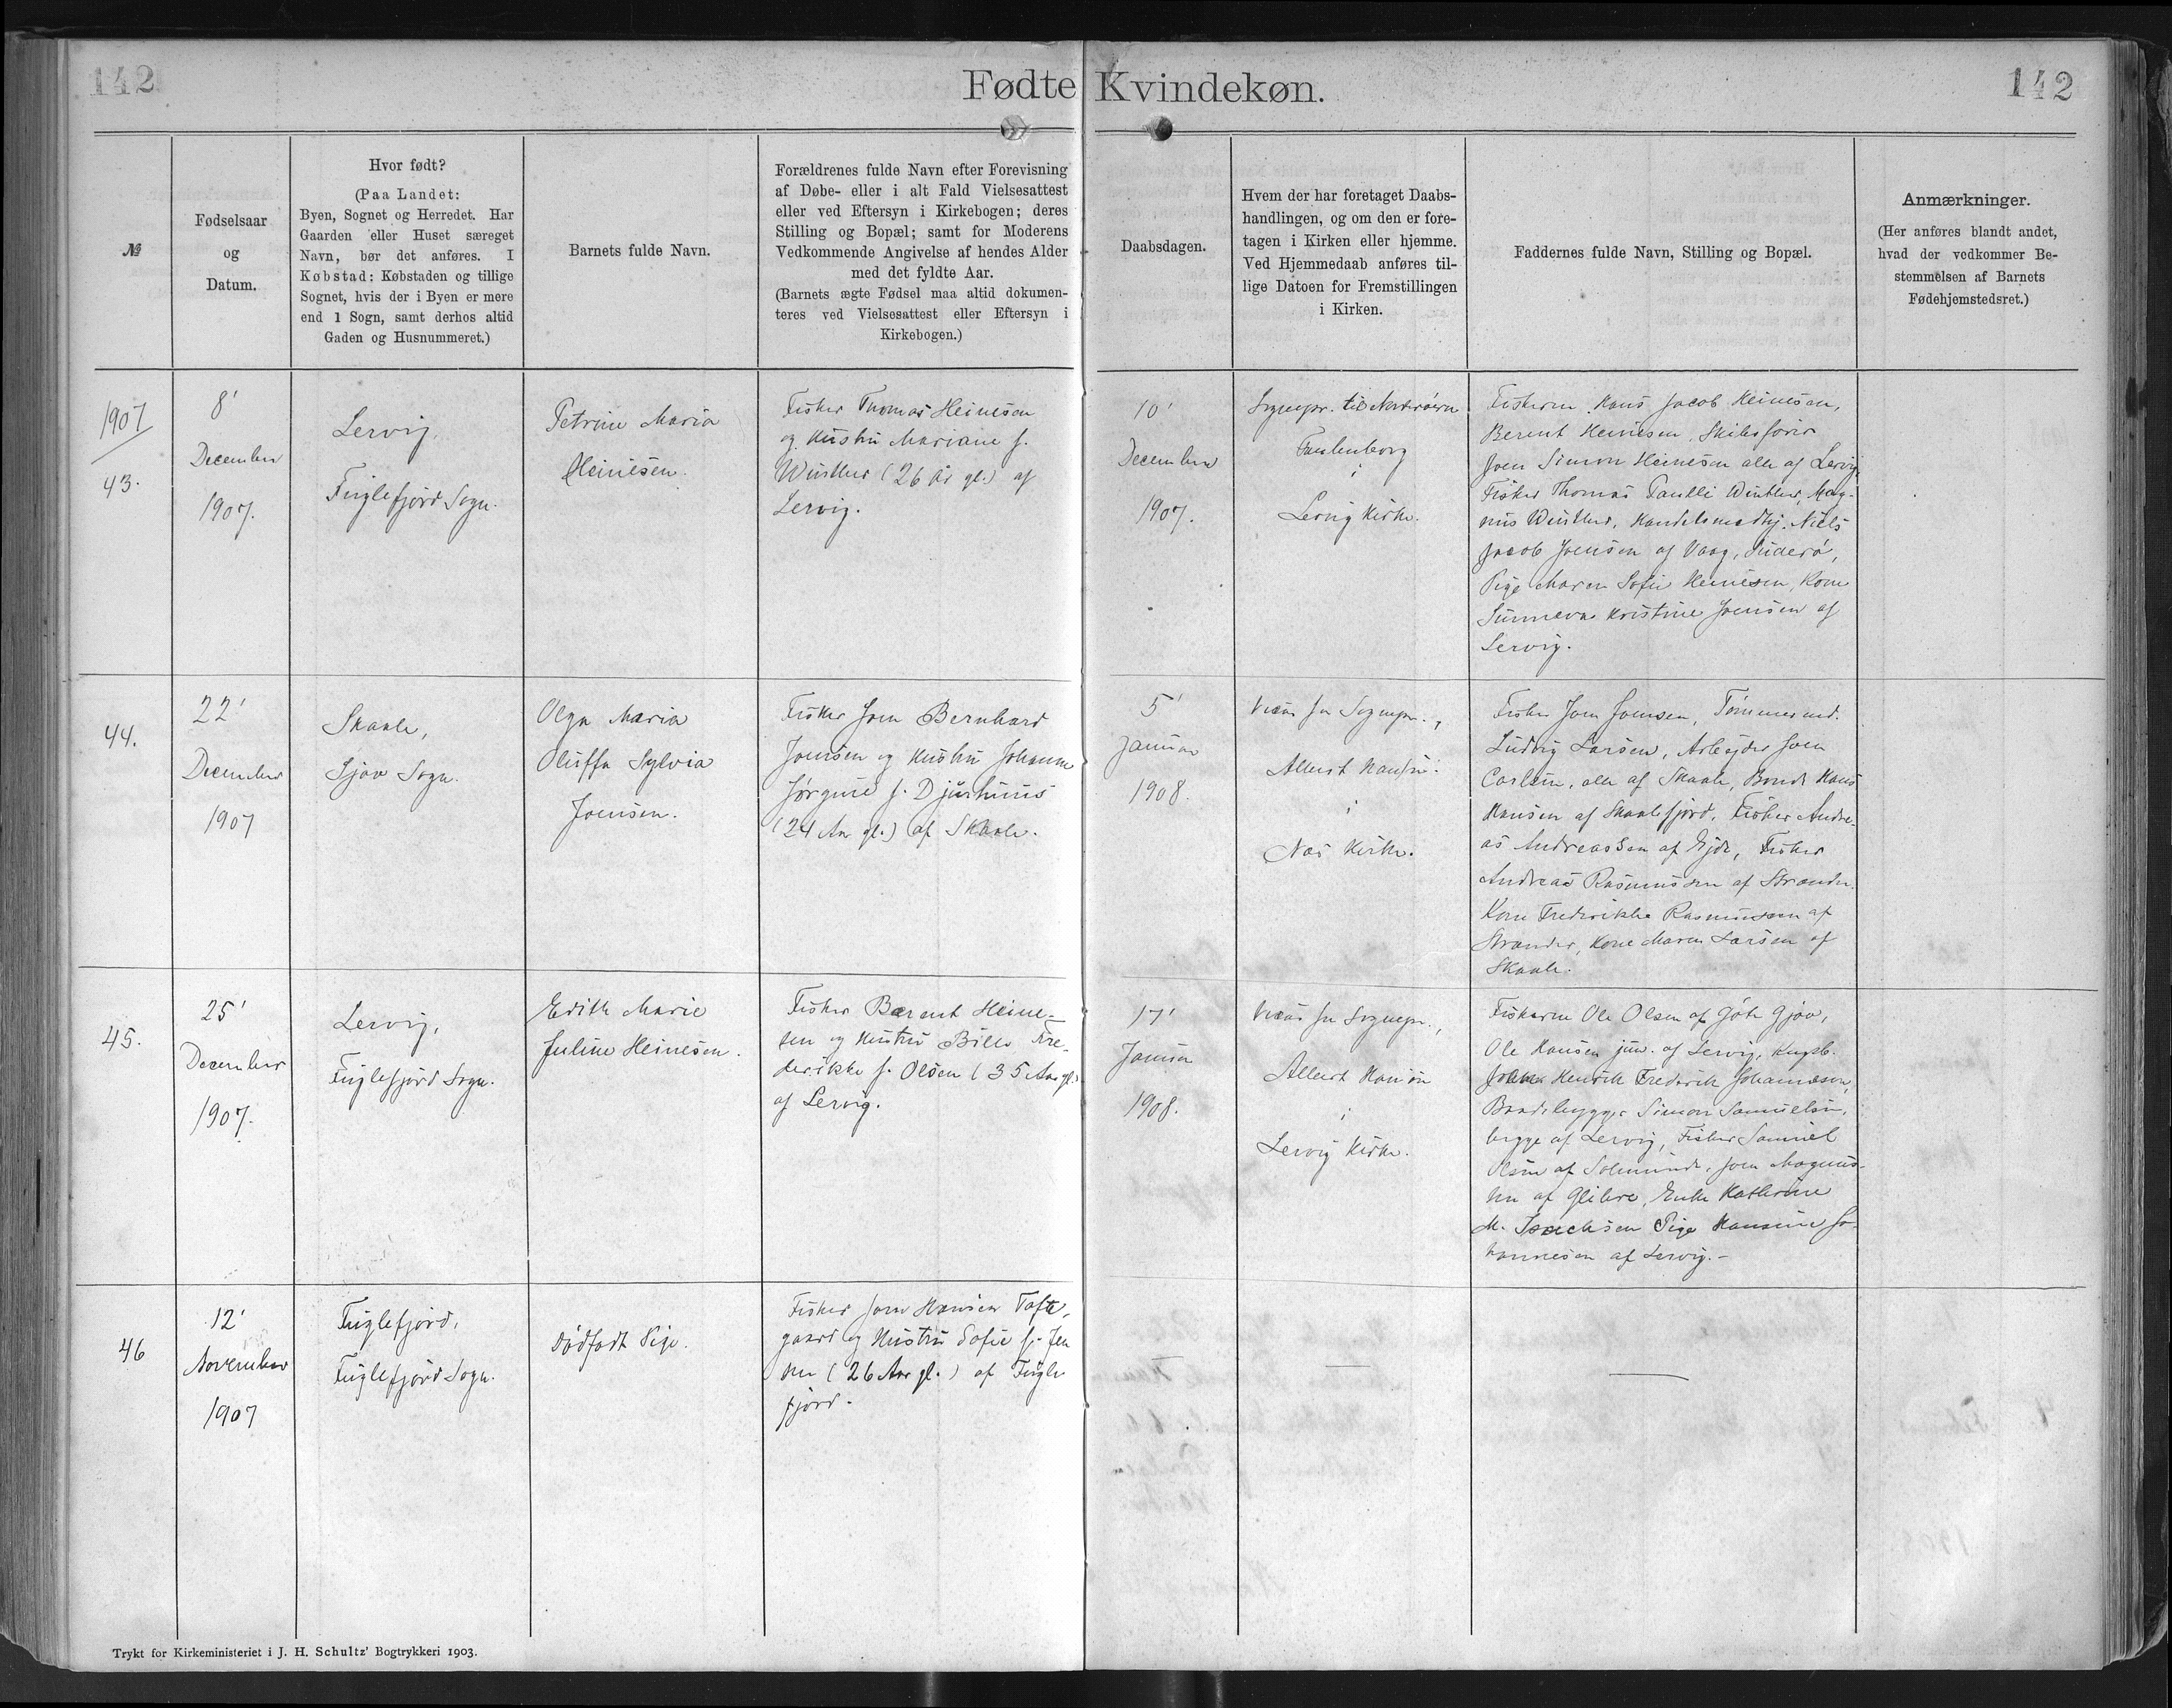 142
Fødte Kvindekøn.
142
№
Fødselsaar
og
Datum.
Hvor født?
(Paa Landet:
Byen, Sognet og Herredet. Har
Gaarden eller Huset særeget
Navn, bør det anføres. I
Købstad: Købstaden og tillige
Sognet, hvis der i Byen er mere
end 1 Sogn, samt derhos altid
Gaden og Husnummeret.)
Barnets fulde Navn.
Forældrenes fulde Navn efter Forevisning
af Døbe- eller i alt Fald Vielsesattest
eller ved Eftersyn i Kirkebogen; deres
Stilling og Bopæl; samt for Moderens
Vedkommende Angivelse af hendes Alder
med det fyldte Aar.
(Barnets ægte Fødsel maa altid dokumen-
teres ved Vielsesattest eller Eftersyn i
Kirkebogen.)
Daabsdagen.
Hvem der har foretaget Daabs-
handlingen, og om den er fore-
tagen i Kirken eller hjemme.
Ved Hjemmedaab anføres til-
lige Datoen for Fremstillingen
i Kirken.
Faddernes fulde Navn, Stilling og Bopæl.
Anmærkninger.
(Her anføres blandt andet,
hvad der vedkommer Be-
stemmelsen af Barnets
Fødehjemstedsret.)
1907
43.
8'
December
1907.
Lervig,
Fuglefjord Sogn.
Petrine Maria
Heinesen.
Fisker Thomas Heinesen
og Hustru Mariane f.
Winther (26 År gl.) af
Lervig.
10'
December
1907.
Sognepr. til Norderøerne
i
Lervig Kirke.
Fiskerne Hans Jacob Heinesen,
Berent Heinesen, Skibsfører
Joen Simon Heinesen alle af Lervig,
Fisker Thomas Paulli Winther, Mag-
nus Winther, Handelsmedhj. Niels
Jacob Joensen af Vaag, Suderö,
Pige Maren Sofie Heinesen, Kone
Sunneva Kristine Joensen af
Lervig.
44.
22'
December
1907
Skaale,
Sjov Sogn.
Olga Maria
Oluffa Sylvia
Joensen.
Fisker Joen Bernhard
Joensen og Hustru Johanne
Jørgine f. Djurhuus
(24 Aar gl.) af Skaale.
5'
Januar
1908.
Vicar for Sognepr.,
Albert Hansen
i
Nes Kirke.
Fisker Joen Joensen, Tömmermd.
Ludvig Larsen, Arbejder Joen
Carlsen, alle af Skaale, Bonde Hans
Hansen af Skaalefjord, Fisker Andre-
as Andreassen af Ejde, Fisker
Andreas Rasmussen af Strender,
Kone Frederikke Rasmussen af
Strender, Kone Maren Larsen af
Skaale.
45.
25'
December
1907.
Lervig,
Fuglefjord Sogn.
Edith Marie
Juline Heinesen.
Fisker Berent Heine-
sen og Hustru Bille Fre-
derikke f. Olsen (35 Aar gl.)
af Lervig.
17'
Januar
1908.
Vicar for Sognepr.,
Albert Hansen
i
Lervig Kirke.
Fiskerne Ole Olsen af Göte Gjov,
Ole Hansen jun. af Lervig, Kngsb.
Henrik Frederik Johannesen,
Baadebygger Simon Samuelsen,
begge af Lervig, Fisker Samuel
Olsen af Solmunde, Joen Magnus-
sen af Glibre, Enke Kathrine
M. Isachsen Pige Hansine Jo-
hannesen af Lervig.-
46
12'
November
1907
Fuglefjord,
Fuglefjord Sogn.
Dödfødt Pige.
Fisker Joen Hansen Tofte-
gaard og Hustru Sofie f. Jen
sen (26 Aar gl.) af Fugle
fjord.
Trykt for Kirkeministeriet i J. H. Schultz' Bogtrykkeri 1903.